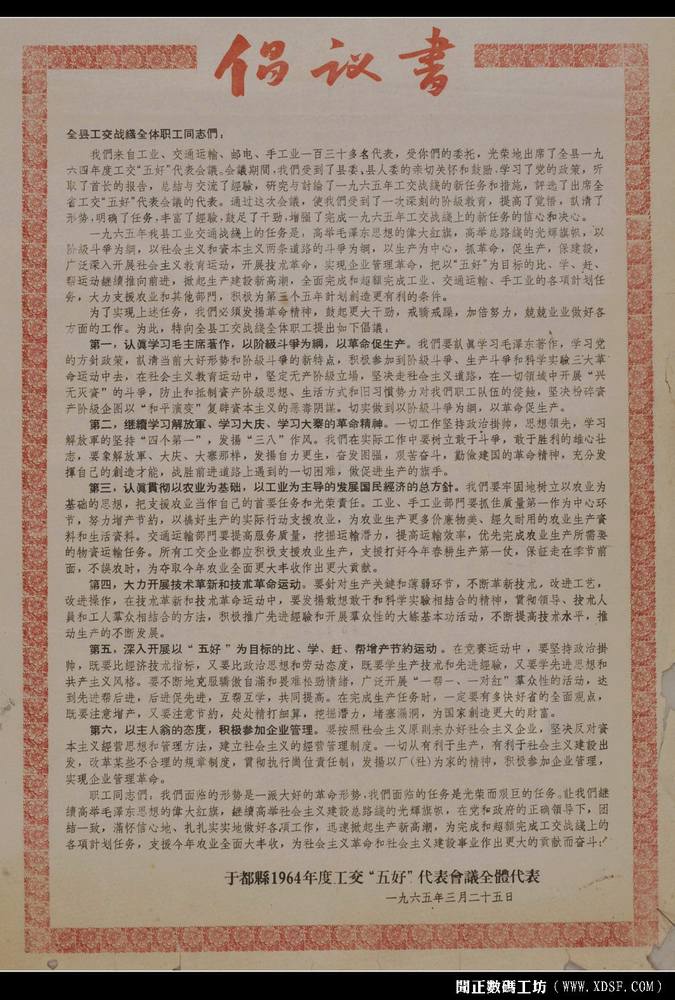 倡议書
全县工交战綫全体职工同志們：
我們来自工业、交通运輸、邮电、手工业一百三十多名代表，受你們的委托，光荣地出席了全县一九
六四年度工交“五好”代表会議。会議期間，我們受到了县委、县人委的亲切关怀和鼓励，学习了党的政策，听
取了首长的报告，总结与交流了經驗，研究与討論了一九六五年工交战綫的新任务和措施，評选了出席全
省工交“五好”代表会議的代表。通过这次会議，使我們受到了一次深刻的阶級教育，提高了覚悟，訊清了
形势，明确了任务，丰富了經驗，鼓足了干劲，增强了完成一九六五年工交战綫上的新任务的信心和决心。
一九六五年我县工业交通战綫上的任务是，高举毛泽东思想的偉大紅旗，高举总路綫的光輝旗帜，以
阶級斗爭为綱，以社会主义和资本主义两条道路的斗爭为綱，以生产为中心，抓革命，促生产，保建設，
广泛深入开展社会主义教育运动，开展技术革命，实現企业管理革命，把以“五好”为目标的比、学、赶、
帮运动继續推向前进，掀起生产建設新高潮，全面完成和超額完成工业、交通运輸、手工业的各項計划任
务，大力支援农业和其他部門，积极为第三个五年計划創造更有利的条件。
为了实現上述任务，我們必須发揚革命精神，鼓起更大干劲，戒驕戒躁，加倍努力，兢兢业业做好各
方面的工作。为此，特向全县工交战綫全体职工提出如下倡議：
第一，认真学习毛主席著作，以阶級斗爭为綱，以革命促生产。我們要訊真学习毛泽东著作，学习党
的方針政策，訊清当前大好形势和阶級斗爭的新特点，积极参加到阶級斗爭、生产斗爭和科学实驗三大革
命运动中去，在社会主义教育运动中，坚定无产阶級立場，坚决走社会主义道路，在一切領域中开展“兴
无灭资”的斗爭，防止和抵制資产阶級思想、生活方式和旧习慣势力对我們职工队伍的侵蝕，坚决粉碎資
产阶級企图以“和平演变”复辟資本主义的恶毒阴謀。切实做到以阶級斗爭为綱，以革命促生产。
第二，继續学习解放軍、学习大庆、学习大寨的革命精神。一切工作坚持政治掛帅，思想領先，学习
解放軍的坚持“四个第一”，发揚“三八”作风。我們在实际工作中要树立敢于斗爭，敢于胜利的雄心壮
志，要象解放軍、大庆、大寨那样，发揚自力更生，奋发图强，艰苦奋斗，勤儉建国的革命精神，充分发
揮自己的創造才能，战胜前进道路上遇到的一切困难，做促进生产的旗手。
第三，认真貫彻以农业为基础，以工业为主导的发展国民經济的总方針。我們要牢固地树立以农业为
基础的思想，把支援农业当作自己的首要任务和光荣責任。工业、手工业部門要抓住质量第一作为中心环
节，努力增产节約，以搞好生产的实际行动支援农业，为农业生产更多价廉物美、經久耐用的农业生产資
料和生活資料。交通运輸部門要提高服务质量，挖掘运輸潜力，提高运輸效率，优先完成农业生产所需要
的物資运輸任务。所有工交企业都应积极支援农业生产，支援打好今年春耕生产第一仗，保証走在季节前
面，不誤农时，为夺取今年农业全面更大丰收作出更大貢献。
第四，大力开展技术革新和技术革命运动。要針对生产关鍵和薄弱环节，不断革新技术，改进工艺，
改进操作，在技术革新和技术革命运动中，要发揚敢想敢干和科学实驗相結合的精神，貫彻領导、技术人
員和工人羣众相結合的方法，积极推广先进經驗和开展羣众性的大練基本功活动，不断提高技术水平，推
动生产的不断发展。
第五，深入开展以“五好”为目标的比、学、赶、帮增产节約运动。在竞賽运动中，要坚持政治掛
帅，既要比經济技术指标，又要比政治思想和劳动态度，既要学生产技术和先进經驗，又要学先进思想和
共产主义风格。要不断地克服驕傲自滿和畏难松劲情緒，广泛开展“一帮一、一对紅”羣众性的活动，达
到先进帮后进，后进促先进，互帮互学，共同提高。在完成生产任务时，一定要有多快好省的全面观点，
既要注意增产，又要注意节約，处处精打細算，挖掘潜力，堵塞漏洞，为国家創造更大的財富。
第六，以主人翁的态度，积极参加企业管理。要按照社会主义原則来办好社会主义企业，坚决反对資
本主义經营思想和管理方法，建立社会主义的經营管理制度。一切从有利于生产，有利于社会主义建設出
发，改革某些不合理的規章制度，貫彻执行崗位責任制，发揚以厂（社）为家的精神，积极参加企业管理，
实現企业管理革命。
职工同志們，我們面临的形势是一派大好的革命形势，我們面临的任务是光荣而艰巨的任务。让我們継
續高举毛泽东思想的偉大紅旗，継續高举社会主义建設总路綫的光輝旗帜，在党和政府的正确領导下，团
結一致，滿怀信心地、扎扎实实地做好各項工作，迅速掀起生产新高潮，为完成和超額完成工交战綫上的
各項計划任务，支援今年农业全面大丰收，为社会主义革命和社会主义建設事业作出更大的貢献而奋斗！
于都縣1964年度工交“五好”代表會議全體代表
一九六五年三月二十五日
閱正數碼工坊（WWW.XDSF.COM）